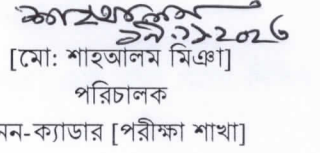 শাহআলম
[মো: শাহআলম মিঞা]
পরিচালক
নন-ক্যাডার [পরীক্ষা শাখা]